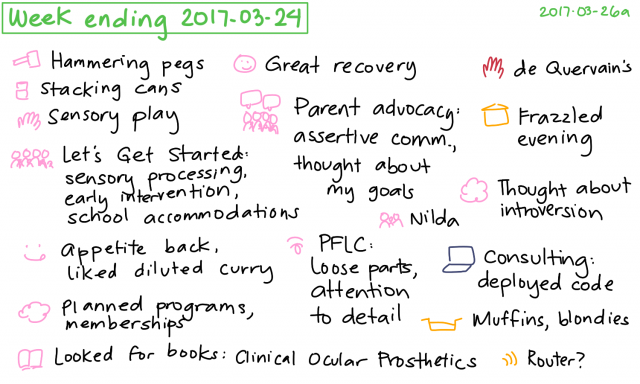 Week ending 2017-03-24
2017-03-26a
Hammering pegs
Stacking cans
Sensory play
Let's Get Started:
sensory processing,
early intervention,
school accommodations
appetite back,
liked diluted curry
Planned programs,
memberships
Looked for books: Clinical Ocular Prosthetics
Great recovery
Parent advocacy:
assertive comm.,
thought about
my goals
Nilda
PFLC:
loose parts,
attention
to detail
de Quervain's
Frazzled
evening
Thought about
introversion
Consulting:
deployed code
Muffins, blondies
Router?